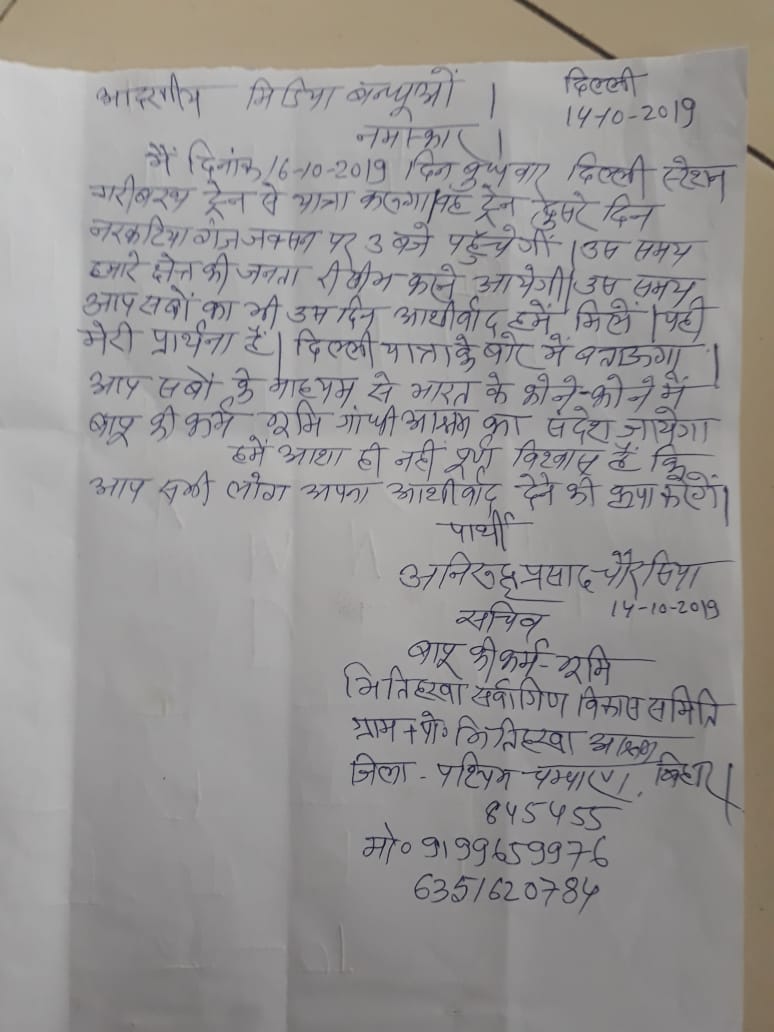 आदरणीय मिडिया बन्धूओं । दिल्ली
14-10-2019
नमास्कार ।
मैं दिनांक 16-10-2019 दिन बुधवार दिल्ली स्टेशन
गरीबरथ ट्रेन से यात्रा करूगा। यह ट्रेन दुसरे दिन
नरकटियागंज जक्सन पर 3 बजे पहुँचेगीं । उस समय
हमारे क्षेत्र की जनता रीसीभ करने आयेगी। उस समय
आप सबों का भी उस दिन आशीर्वाद हमें मिलें । यही
मेरी प्रार्थना हैं । दिल्ली यात्रा के बारे में बताऊगा ।
आप सबों के माध्यम से भारत के कोने-कोने में
बापू की कर्म भूमि गांधी आश्रम का संदेश जायेगा
हमें आशा ही नहीं पूर्ण विश्वास हैं कि
आप सभी लोग अपना आशीर्वाद देने की कृपा करेगें।
पार्थी
अनिरूद्ध प्रसाद चौरसिया
सचिव 14-10-2019
बापू की कर्म-भूमि
भितिहरवा सर्वागिण विकास समिति
ग्राम + पो० भितिहरवा आश्रम
जिला - पश्चिम चम्पारण, बिहार।
845455
मो० 9199659976
6351620784